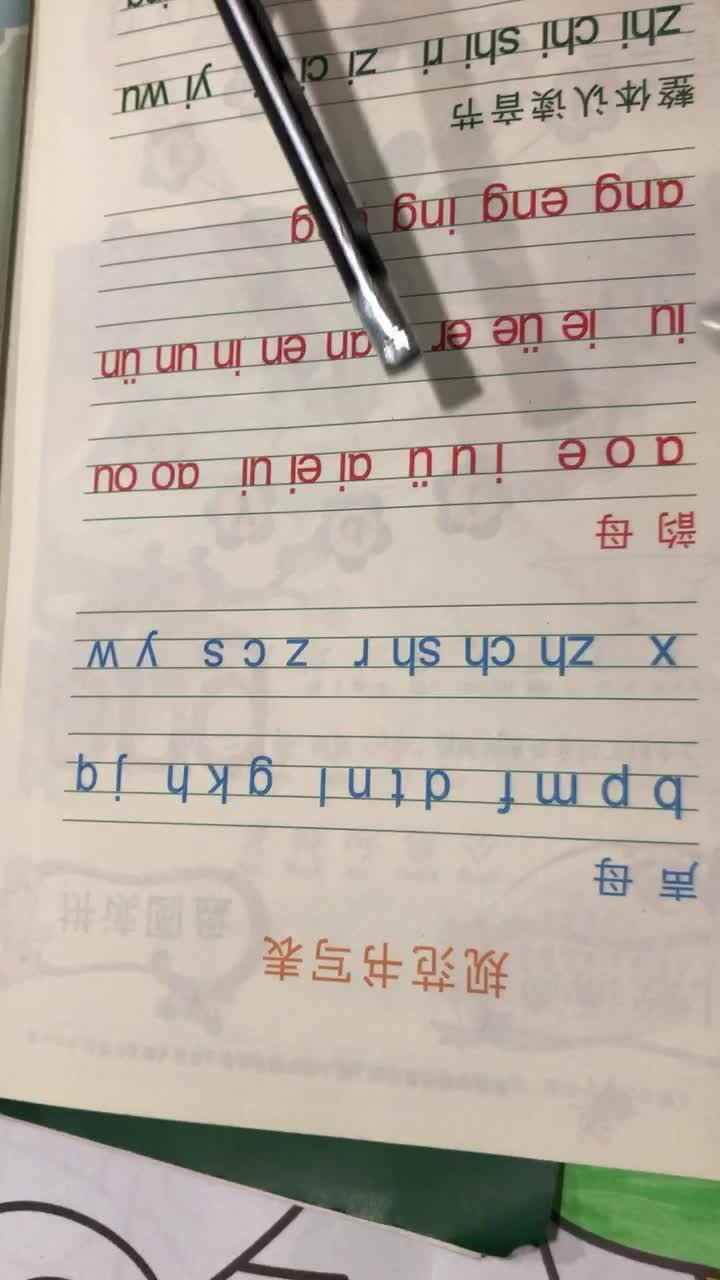 规范书写表
声母
b p m f d t n l g k h j q
x zh ch sh r z c s y w
韵母
a o e i u ü ai ei ui ao ou
iu ie üe er an en in un ün
ang eng ing
整体认读音节
zhi chi shi ri zi ci yi wu